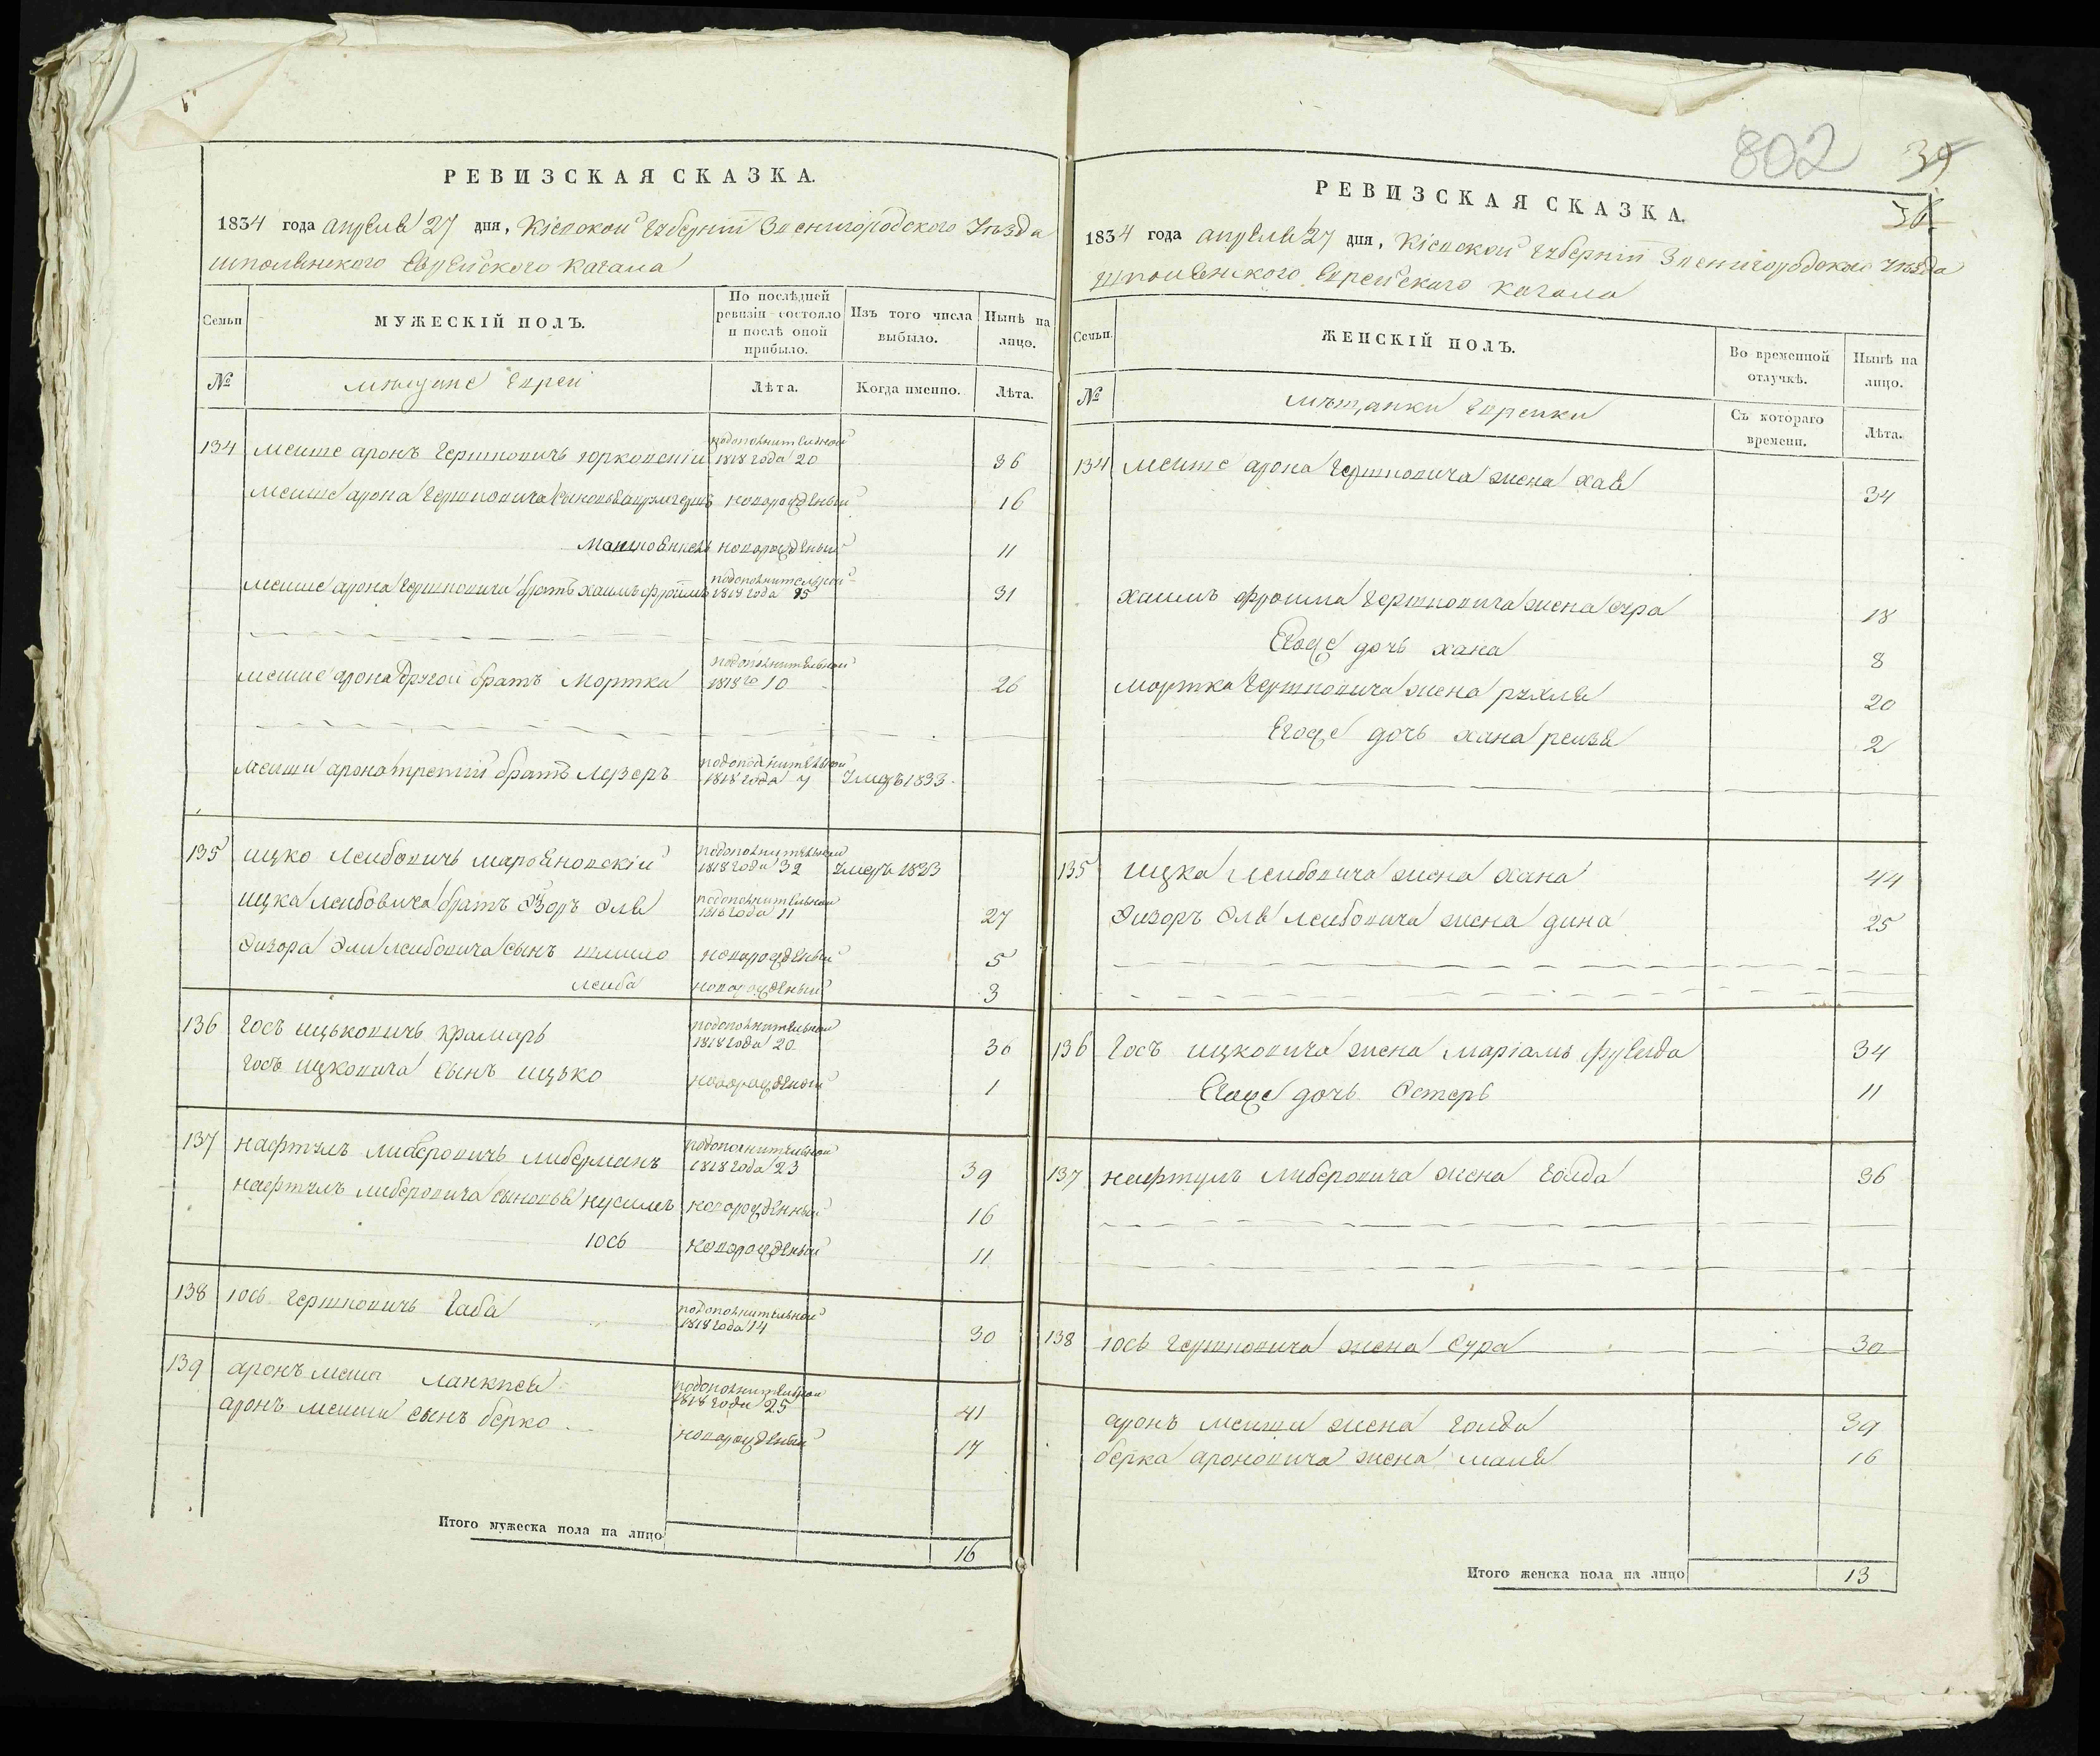 РЕВИЗСКАЯ СКАЗКА.
1834 года апреля 27 дня, Кіевской Губерніи Звенигородского Уезда
шполянского Еврейского Кагала
Семьи
МУЖЕСКІЙ ПОЛЪ.
По послѣдней ревизіи состояло и послѣ оной прибыло.
Изъ того числа выбыло.
Нынѣ на лицо.
№
мещане Евреи
Лѣта.
Когда именно.
Лѣта.
134 Меише аронъ Гершковичъ подополнительной 1818 года 20 36
Меише арона Гершковича сыновья новорожденый 16
новорожденый 11
Меише арона Гершковича братъ хаимъ фроимъ подополнительной 1818 года 15 31
меише арона другой братъ Мортка подополнительной 1818 го 10 26
меиши арона третий братъ Лезеръ подополнительной 1818 года 7 Умеръ 1833
135 ицко Леибовичъ Марояновскій подополнительной 1818 года 32 Умеръ 1823
ицка Леибовича братъ Эля подополнительной 1818 года 11 27
Эизора Эли Леибовича сынъ шлиомо новорожденый 5
леиба новорожденый 3
136 Госъ ицьковичъ крамаръ подополнительной 1818 года 20 36
Госъ ицковича сынъ ицько новорожденый 1
137 нафтулъ либеровичъ либерманъ подополнительной 1818 года 23 39
нафтулъ либеровича сыновья нусимъ новорожденный 16
юсь новорожденый 11
138 юсь Гершковичъ Габа подополнительной 1818 года 14 30
139 аронъ меиша подополнительной 1818 года 25 41
аронъ меиши сынъ берко новорожденый 17
Итого мужеска пола на лицо 16
802
39
36
РЕВИЗСКАЯ СКАЗКА.
1834 года апреля 27 дня, Кіевской Губерніи Звенигородского Уезда
шполянского Еврейского Кагала
Семьи.
ЖЕНСКІЙ ПОЛЪ.
Во временной отлучкѣ.
Нынѣ на лицо.
№
мѣщанки Евреики
Съ котораго времени.
Лѣта.
134 Меише арона Гершковича жена хая 34
хаимъ фроима Гершковича жена сура 18
Егоже дочь хана 8
мортка Гершковича жена рухля 20
Егоже дочь хана реизя 2
135 ицка Леибовича жена хана 44
Эизоръ Эля Леибовича жена дина 25
136 Госъ ицковича жена Маріамъ фрейда 34
Егоже дочь Эстеръ 11
137 нафтулъ Либеровича жена Голда 36
138 юсь Гершковича жена Сура 30
аронъ меиши жена голда 39
берка ароновича жена маля 16
Итого женска пола на лицо 13